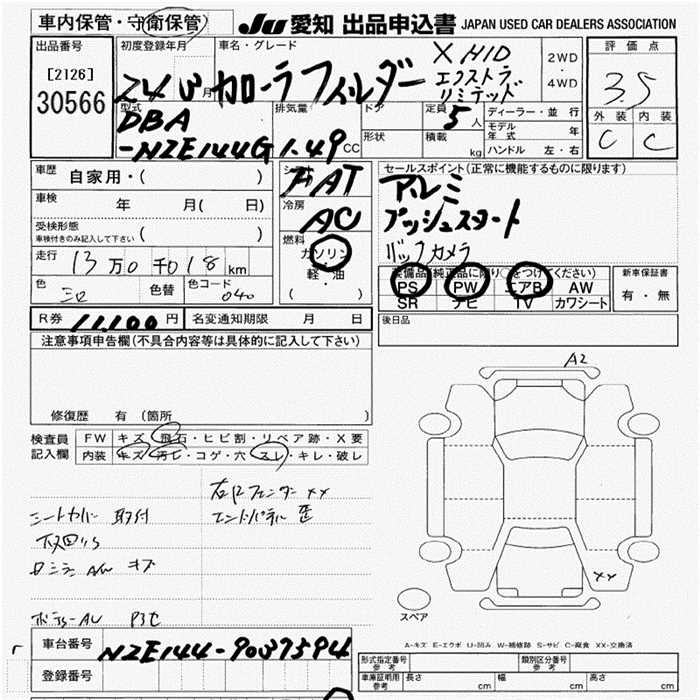 車内保管・守衛保管)
JU 愛知 出品申込書 JAPAN USED CAR DEALERS ASSOCIATION
出品番号
[2126]
30566
初度登録年月
車名・グレード
24 年 月 カローラフィルダー
X HID
エクストラ
リミテッド
2WD
・
4WD
評価点
3.5
外装 内装
C C
型式
DBA
-NZE144G
排気量
1.49 CC
ドア
形状
定員
5人
積載
kg
ディーラー・並行
モデル
年式 年
ハンドル 左・右
車歴
自家用・( )
車検
年 月( 日)
受検形態
車検付きのみ記入して下さい ( )
走行
13万0千018 km
色
色替
色コード
040
シフト
FAT
冷房
AC
燃料
ガソリン
・
軽・油
( )
セールスポイント(正常に機能するものに限ります)
アルミ
プッシュスタート
バックカメラ
装備品(純正品に限り○をつけてください)
PS PW エアB AW
SR ナビ TV カワシート
新車保証書
有・無
R券 11,100円
名変通知期限 月 日
後日品
注意事項申告欄(不具合内容等は具体的に記入して下さい)
修復歴 有(箇所 )
検査員
記入欄
FW キズ・飛石・ヒビ割・リペア跡・X要
内装 キズ・汚レ・コゲ・穴・スレ・キレ・破レ
右Rフェンダー XX
シートカバー 取付
エンドパネル 歪
A2
XX
スペア
A-キズ E-エクボ U-凹み W-補修跡 S-サビ C-腐食 XX-交換済
車台番号 NZE144-9037594
登録番号
形式指定番号
参考
類別区分番号
参考
車庫証明用
参考
長さ cm
幅 cm
高さ cm